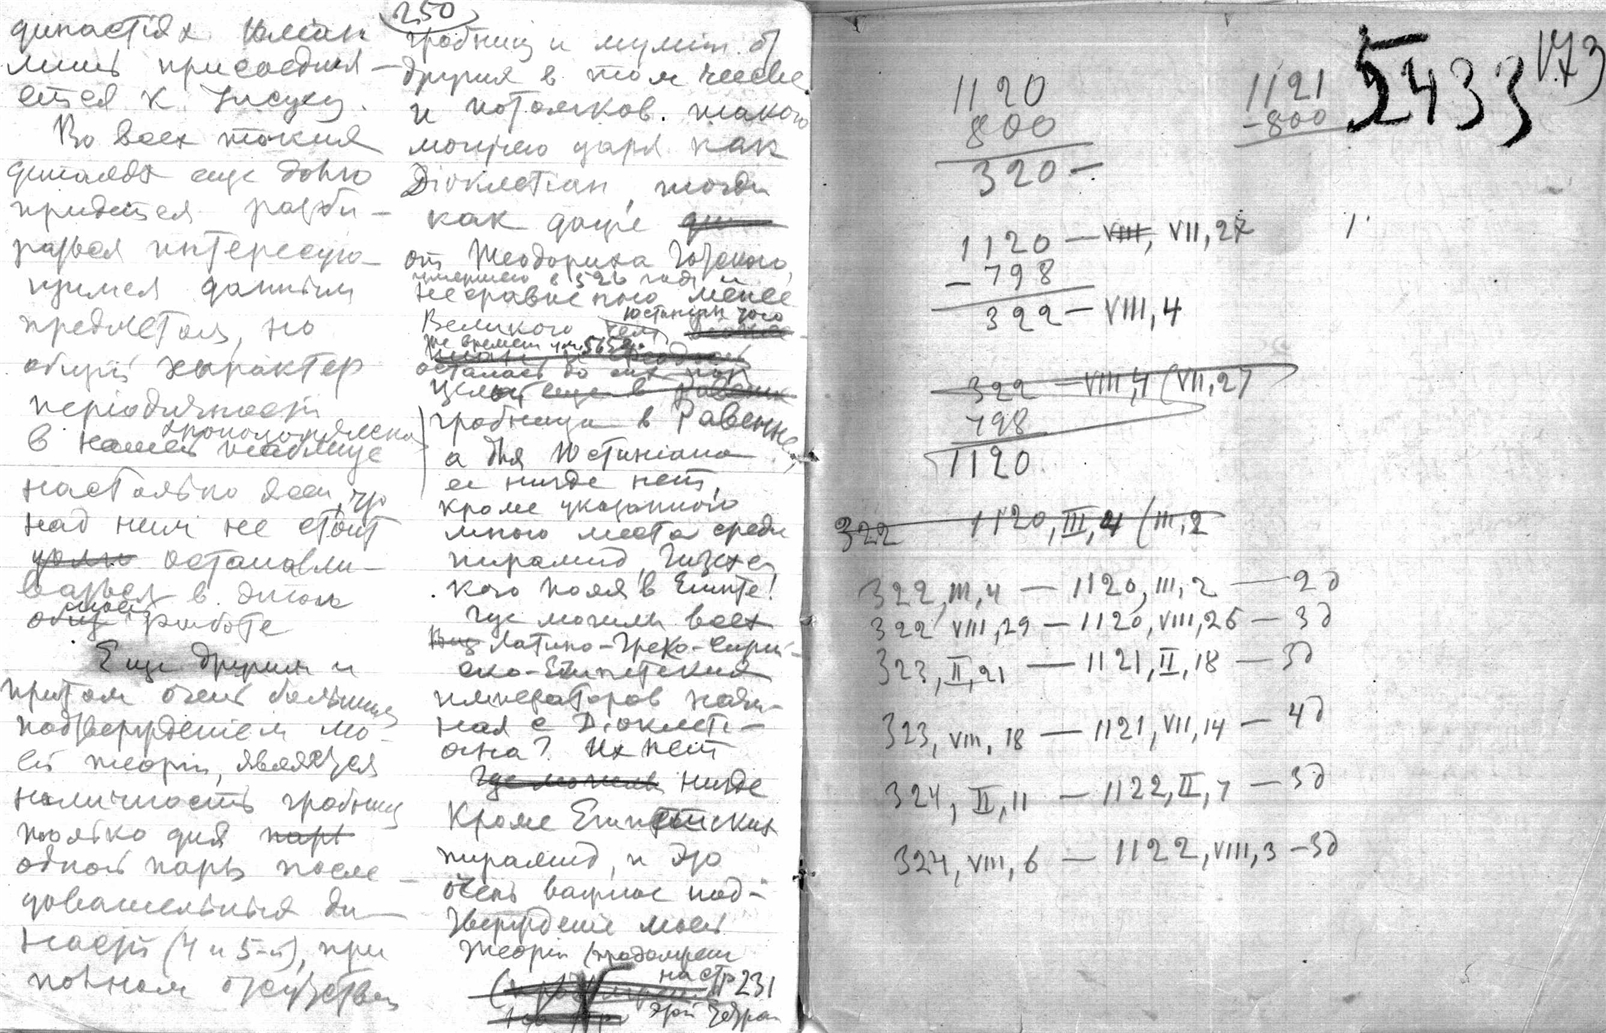 250
династіях
лишь присоедня-
ется к Іисусу.
Во всех
еще
придется разби-
раться интересую-
щимся данным
предметом, но
общій характер
періодичности
в нашей
хронологической
таблице
настолько ясен, что
над ним не стоит
останавли-
ваться в
моей работе
Еще другим и
притом очень большим
подтвержденіем мо-
ей теоріи, является
наличность гробниц
только для
одной пары после-
довательных ди-
настій (4 и 5-й), при
полном отсутствіи
гробниц и мумій
других в том числе
и потомков. такого
могучего царя как
Діоклетіан, тогда
как даже
от Теодориха Готского,
умершего в 526 году и
несравненно менее
Великого чем
Юстиніан того
же времени ум. 565 г.
осталась до сих пор
гробница в Равенне,
а для Юстиніана
ее нигде нет,
кроме указанного
мною места среди
пирамид Гизехс
кого поля в Египте!
Где могилы всех
Латино-Греко-Сирій-
ско-Египетских
императоров начи-
ная с Діоклеті-
ана? Их нет
нигде
Кроме Египетских
пирамид, и это
очень важное под-
твержденіе моей
теоріи (продолжение
на стр 231
этой тетради
5433
173
1120
800
320 —
1121
- 800
1120 — VIII, VII, 27
- 798
322 — VIII, 4
322 — VIII, 4 (VII, 27
798
1120
322 1120, III, 4 (III, 2
322, III, 4 — 1120, III, 2 — 2д
322 VIII, 29 — 1120, VIII, 26 — 3д
323, II, 21 — 1121, II, 18 — 3д
323, VIII, 18 — 1121, VII, 14 — 4д
324, II, 11 — 1122, II, 7 — 3д
324, VIII, 6 — 1122, VIII, 3 — 3д